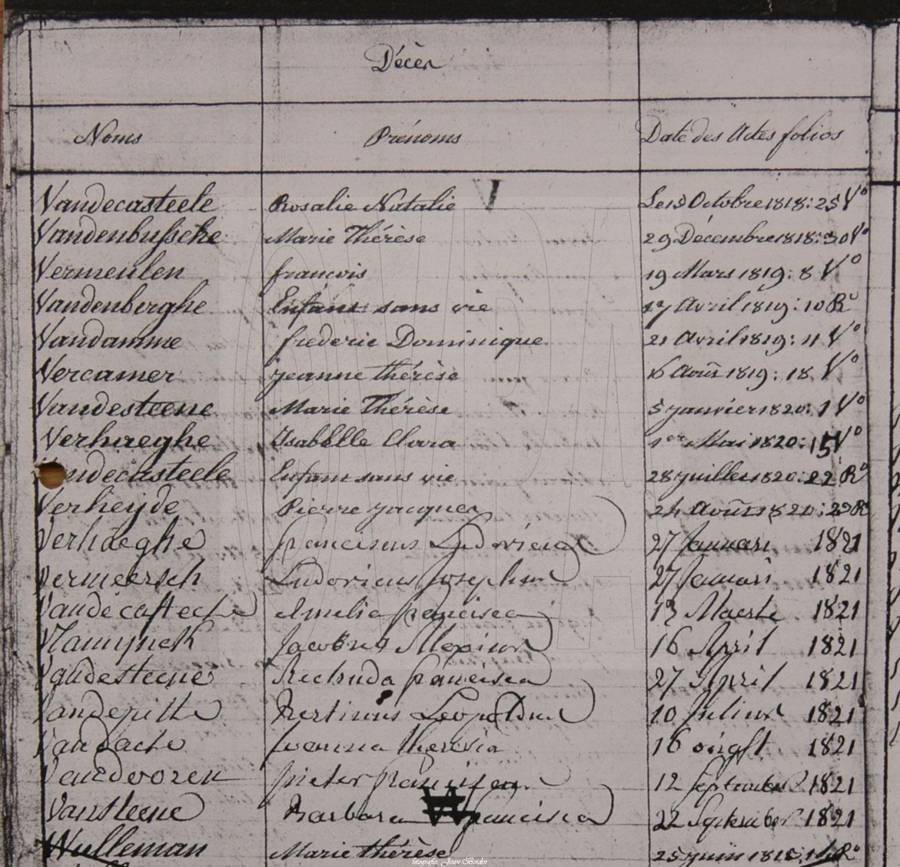 Décès
Noms Prénoms Date des Actes folios
V
Vandecasteele Rosalie Natalie Le 13 Octobre 1818: 25 Vº
Vandenbussche Marie Thérèse 29 Décembre 1818: 30 Vº
Vermeulen francois 19 Mars 1819: 8 Vº
Vandenberghe Enfant sans vie 17 Avril 1819: 10 Rº
Vandamme frederic Dominique 21 Avril 1819: 11 Vº
Vercamer jeanne thérèse 16 Août 1819: 18 Vº
Vandesteene Marie Thérèse 5 janvier 1820: 1 Vº
Verhaeghe Isabelle Clara 1er Mai 1820: 15 Vº
Vandecasteele Enfant sans vie 28 juillet 1820: 22 Rº
Verheyde Pierre jacques 24 Août 1820: 29 Rº
Verhaeghe franciscus Ludovicus 27 Januari 1821
Vermeersch Ludovicus josephus 27 Januari 1821
Vandecasteele Amelia francisca Maerte 1821
Jacobus 16 April 1821
Vandesteene francisca 27 April 1821
Vandeputte Leopoldus 10 Julius 1821
Joanna theresia 16 1821
pieter 12 September 1821
Vansteene Barbara francisca 22 September 1821
W
Wulleman Marie thérèse 25 juin 1815: Rº